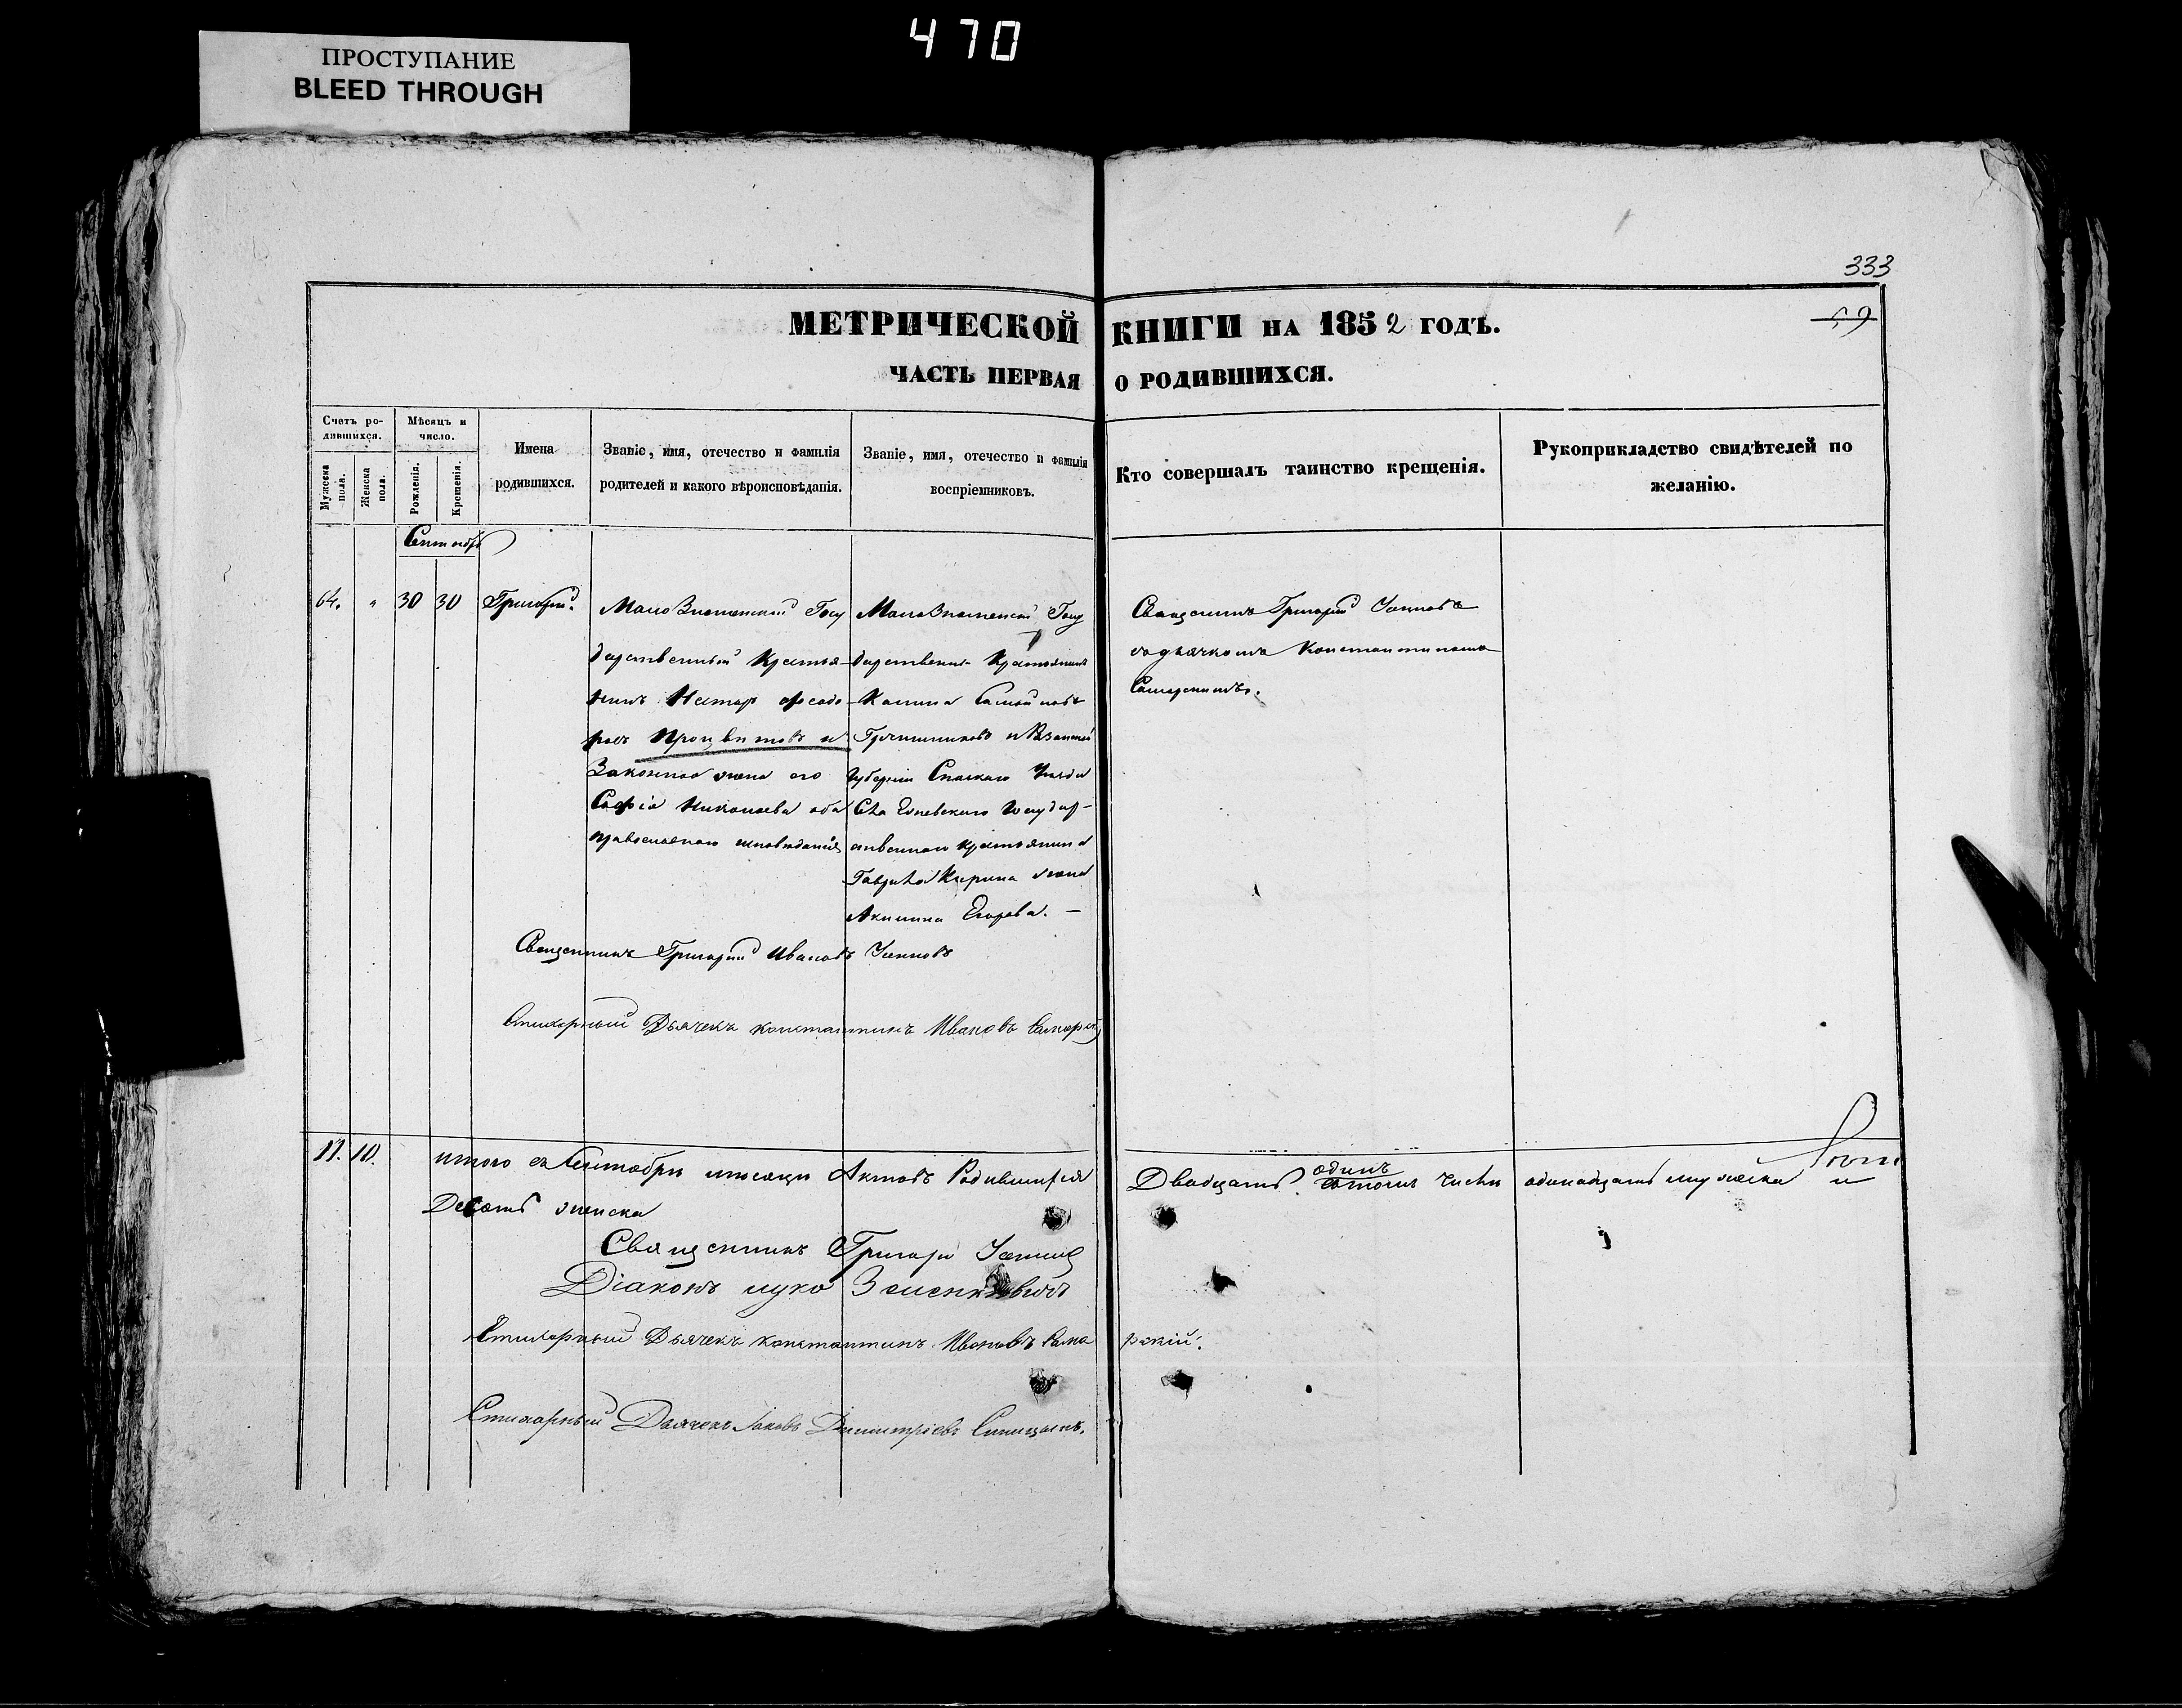 470
ПРОСТУПАНИЕ
BLEED THROUGH
333
МЕТРИЧЕСКОЙ КНИГИ НА 1852 ГОДЪ.
59
ЧАСТЬ ПЕРВАЯ О РОДИВШИХСЯ.
Счетъ ро-
дившихся.
Мужеска
пола.
Женска
пола.
Мѣсяцъ и
число.
Рожденія.
Крещенія.
Имена
родившихся.
Званіе, имя, отечество и фамилія
родителей и какого вѣроисповѣданія.
Званіе, имя, отечество и фамилія
воспріемниковъ.
Кто совершалъ таинство крещенія.
Рукоприкладство свидѣтелей по
желанію.
Сентябрь
64.
"
30
30
Григорій.
Мало Знаменскій Госу
дарственный Крестья-
нинъ Нестор Феодо
ровъ Процвѣтовъ и
Законная жена его
Софія Николаева оба
православнаго исповѣданія
МалоЗнаменскій Госу
дарственный Крестьянинъ
Самойловъ
Гречишниковъ и Рязанской
Губерніи Спаскаго Уѣзда
Села Государ-
ственнаго крестьянина
Гаврила Кирина жена
Акилина Егорова. —
Священникъ Григорій
съ дьячкомъ Константиномъ
Самарскимъ.
Священникъ Григорій Ивановъ
Стихарный Дьячекъ Константинъ Ивановъ Самарскій
11.
10.
итого въ Сентябрѣ мѣсяцѣ Актовъ Родившихся Двадцать одинъ въ томъ числѣ одинадцать мужеска и
Десять женска
Священникъ Григорій
Діаконъ Лука
Стихарный Дьячекъ Константинъ Ивановъ Самарскій.
Стихарный Дьячекъ Іаковъ Димитріевъ Синицынъ.